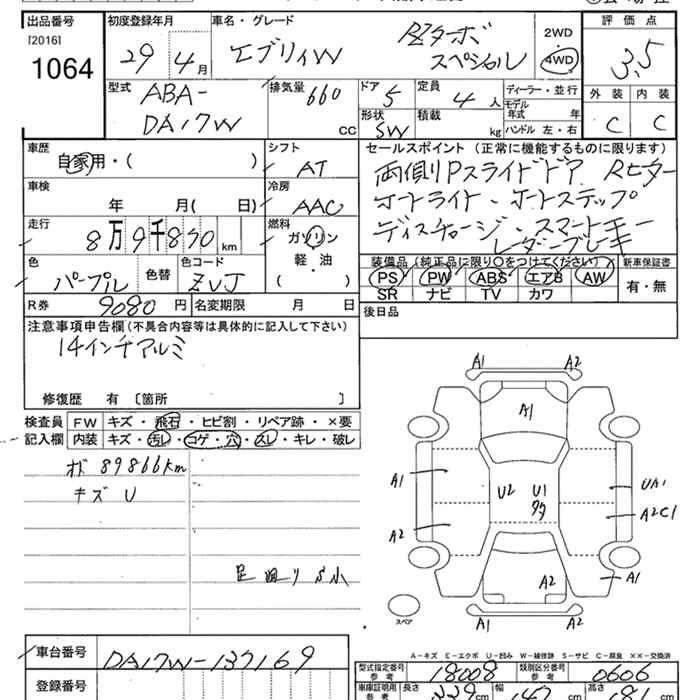 出品番号 初度登録年月 車名・グレード 評価点
[2016] 29年 4月 エブリィW PZターボ 2WD
1064 スペシャル 4WD 3.5
型式 排気量 ドア 定員 ディーラー・並行 外装 内装
ABA- 660 5 4人 モデル年式 年 C C
DA17W CC 形状 積載 kg ハンドル 左・右
SW
車歴 シフト セールスポイント (正常に機能するものに限ります)
自家用・( ) AT 両側Pスライドドア Rヒーター
車検 冷房 オートライト・オートステップ
年 月( 日) AAC ディスチャージ・スマートキー
走行 燃料 レーダーブレーキ
8万9千870km ガソリン
色 色替 色コード 軽・油 装備品 (純正品に限り○をつけてください) 新車保証書
パープル ZVJ ( ) PS PW ABS エアB AW 有・無
SR ナビ TV カワ
R券 9080円 名変期限 月 日 後日品
注意事項申告欄(不具合内容等は具体的に記入して下さい)
14インチアルミ
修復歴 有 〔箇所 〕
検査員 FW キズ・飛石・ヒビ割・リペア跡・×要
記入欄 内装 キズ・汚れ・コゲ・穴・スレ・キレ・破レ
オド 89866km
キズ U
足回りS小
A1 A2
A1
A1 U2 U1 UA1
多
A2 A2C1
A2 A1
スペア A1 A2
A-キズ E-エクボ U-凹み W-補修跡 S-サビ C-腐食 ××-交換済
車台番号 DA17W-137169 型式指定番号 参考 18008 類別区分番号 参考 0606
登録番号 車庫証明用 参考 長さ 339cm 幅 147cm 高さ 181cm